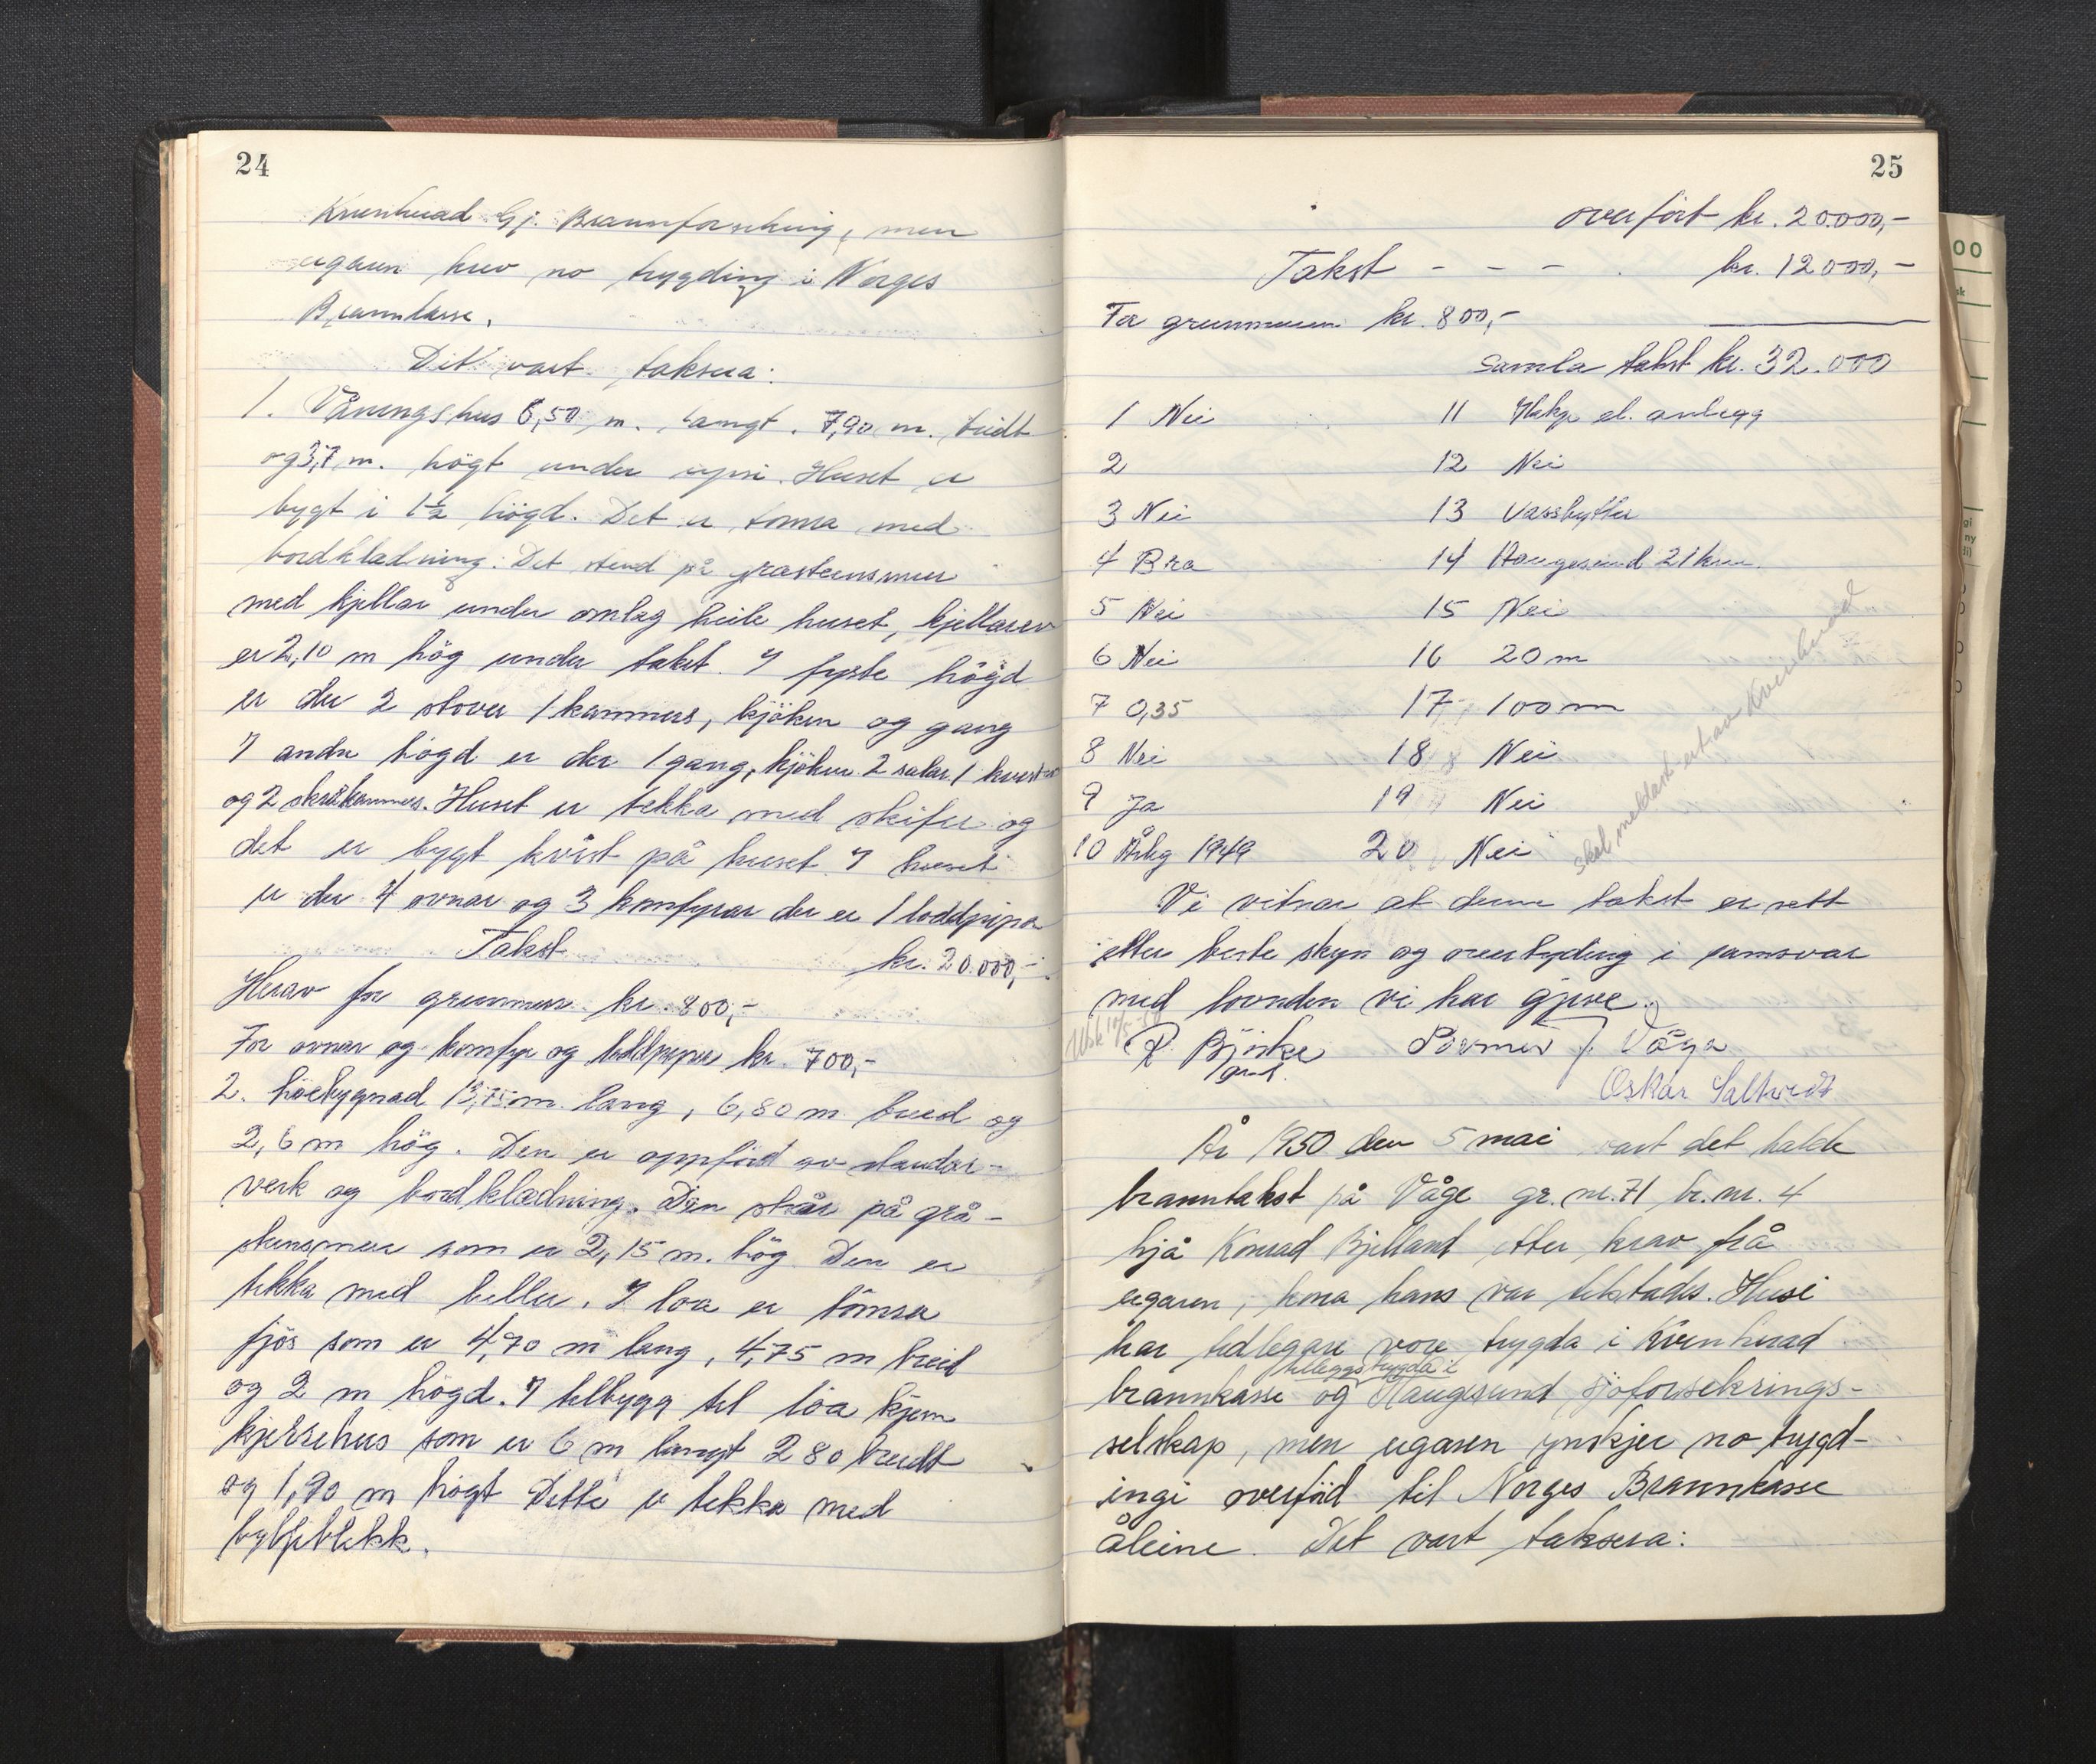 24
Kvenherad Gj. Brannforsikring, men
eigaren krev no trygding i Norges
Brannkasse.
Det vart taksera:
1. Våningshus 8,50 m. langt. 7,90 m. breidt
og 3,7 m. högt under upsi. Huset er
bygt i 1½ högd. Det er tomra med
bordkledning. Det stend på gråsteinsmur
med kjellar under omlag heile huset, kjellaren
er 2,10 m hög under taket. I fyrste högd
er der 2 stover 1 kammers, kjöken og gang
I andre högd er der 1 gang, kjöken 2 salar 1 kvist
og 2 skråkammers. Huset er tekka med skifer og
det er bygt kvist på huset. I huset
er der 4 ovnar og 3 komfyrar der er 1 loddpipa
Takst kr. 20.000,-
Herav for grunnmur kr. 800,-
For ovnar og komfyr og loddpipe kr. 700,-
2. höebygnad 13,75 m. lang, 6,80 m. breid og
2,6 m hög. Den er oppförd av standar-
verk og bordkledning. Den står på grå-
steinsmur som er 2,15 m. hög Den er
tekka med heller. I loa er tömra
fjös som er 4,70 m lang, 4,75 m breid
og 2 m högd. I tilbygg til loa kjem
kjerrehus som er 6 m langt 2 80 breidt
og 1,90 m högt Dette er tekka med
bylgjeblekk.
25
overfört kr. 20.000,-
Takst - - - kr. 12000,-
For grunnmuren kr. 800,-
Samla takst kr. 32.000
1 Nei 11 el. anlegg
2 12 Nei
3 Nei 13 Vassbytter
4 Bra 14 Haugesund 21 km.
5 Nei 15 Nei
6 Nei 16 20 m
7 0,35 17 100 m
8 Nei 18 Nei
9 Ja 19 Nei
10 Årleg 1949 20 Nei
skal meldast ut av Kvinnherad
Vi vitnar at denne takst er rett
etter beste skyn og overtyding i samsvar
med lovnden vi har gjeve.
R. Björke J. Våga
Oskar Saltvedt
År 1950 den 5 mai vart det halde
branntakst på Våge gr. nr. 71 br. nr. 4
hjå Konrad Bjelland etter krav frå
eigaren, kona hans var tilstades. Husi
har tidlegare vore trygda i Kvenherad
tilleggstrygda i
brannkasse og Haugesund Sjöforsekrings-
selskap, men eigaren ynskjer no trygd-
ingi overförd til Norges Brannkasse
åleine. Det vart taksera: